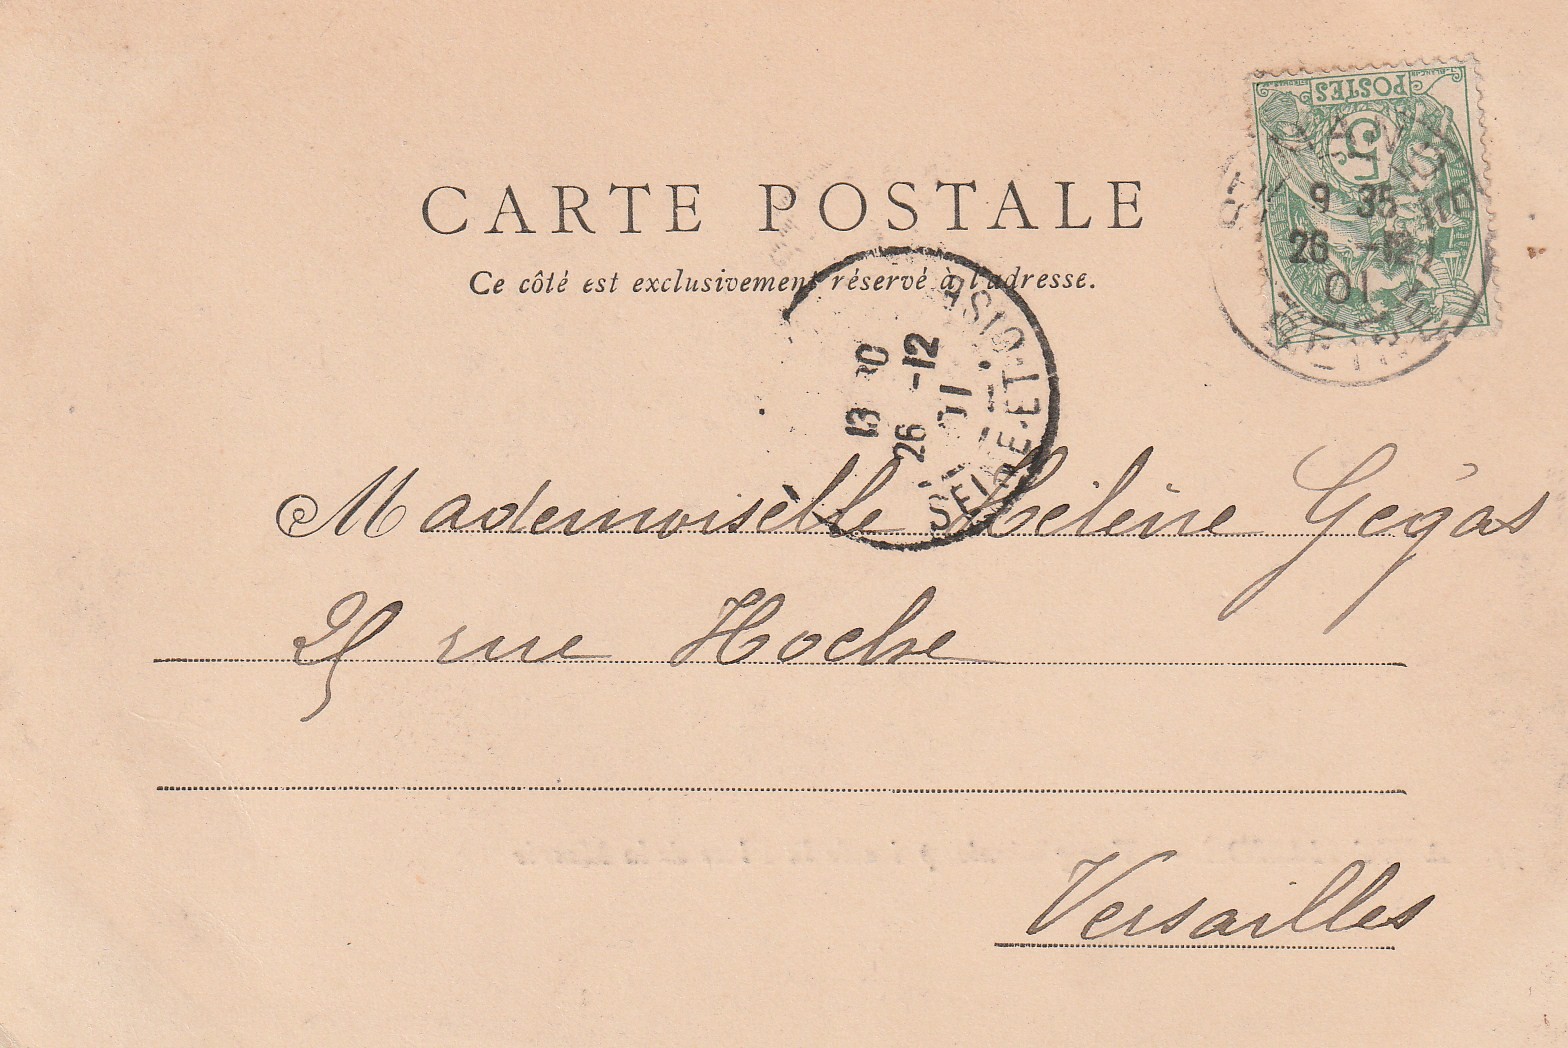 POSTES
5
CARTE POSTALE
9 35
26 -12
01
Ce côté est exclusivement réservé à l'adresse.
26 -12
01
SEINE-ET-OISE
Mademoisèlle Hélène Gegas
25 rue Hoche
Versailles